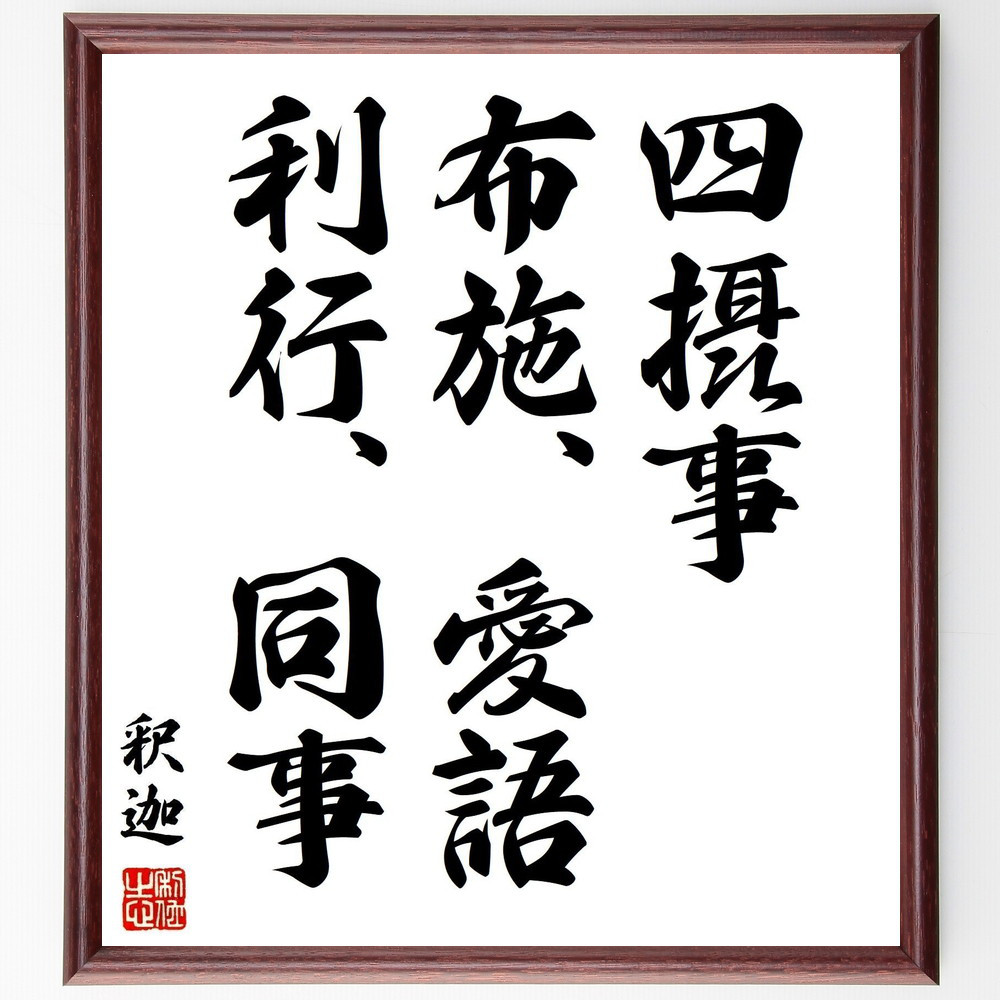 四摂事
布施、愛語
利行、同事
釈迦